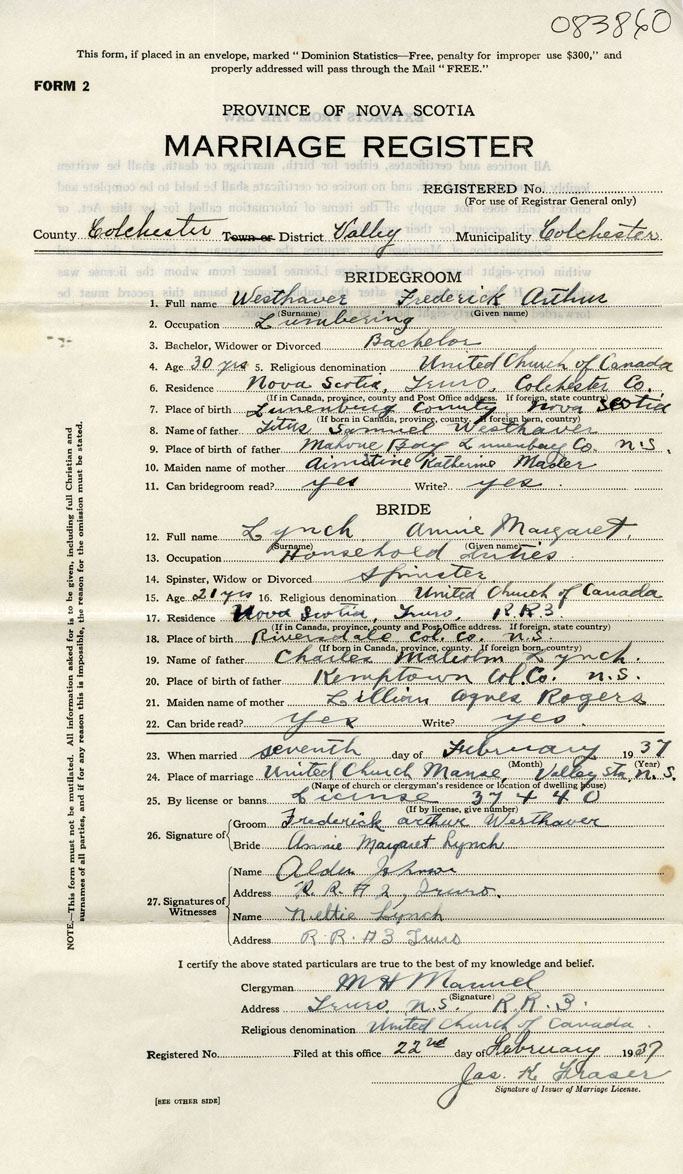 083860
This form, if placed in an envelope, marked "Dominion Statistics—Free, penalty for improper use $300," and
properly addressed will pass through the Mail "FREE."
FORM 2
PROVINCE OF NOVA SCOTIA
MARRIAGE REGISTER
REGISTERED No.
(For use of Registrar General only)
County Colchester Town or District Valley Municipality Colchester
BRIDEGROOM
1. Full name Westhaver Frederick Arthur
(Surname) (Given name)
2. Occupation Lumbering
3. Bachelor, Widower or Divorced Bachelor
4. Age 30 yrs 5. Religious denomination United Church of Canada
6. Residence Nova Scotia, Truro, Colchester Co.
(If in Canada, province, county and Post Office address. If foreign, state country)
7. Place of birth Lunenburg County Nova Scotia
(If born in Canada, province, county. If foreign born, country)
8. Name of father Titus Samuel Westhaver
9. Place of birth of father Mahone Bay Lunenburg Co. N.S.
10. Maiden name of mother Katherine Mader
11. Can bridegroom read? yes Write? yes
BRIDE
12. Full name Lynch Annie Margaret
(Surname) (Given name)
13. Occupation Household duties
14. Spinster, Widow or Divorced Spinster
15. Age 21 yrs 16. Religious denomination United Church of Canada
17. Residence Nova Scotia, Truro, R.R.3
(If in Canada, province, county and Post Office address. If foreign, state country)
18. Place of birth Riversdale Col. Co. N.S.
(If born in Canada, province, county. If foreign born, country)
19. Name of father Charles Malcolm Lynch.
20. Place of birth of father Kemptown Col. Co. N.S.
21. Maiden name of mother Lillian Agnes Rogers
22. Can bride read? yes Write? yes.
23. When married seventh day of February 1937
(Month) (Year)
24. Place of marriage United Church Manse, Valley Sta, N.S.
(Name of church or clergyman's residence or location of dwelling house)
25. By license or banns License 37440
(If by license, give number)
26. Signature of
Groom Frederick arthur Westhaver
Bride Annie Margaret Lynch
27. Signatures of Witnesses
Name Alden
Address R.R #2, Truro.
Name Nettie Lynch
Address R.R #3 Truro
I certify the above stated particulars are true to the best of my knowledge and belief.
Clergyman M H Manuel
(Signature)
Address Truro, N.S. R.R.3.
Religious denomination United Church of Canada.
Registered No. Filed at this office 22nd day of February 1937
Jas. K. Fraser
Signature of Issuer of Marriage License.
[SEE OTHER SIDE]
NOTE.—This form must not be mutilated. All information asked for is to be given, including full Christian and
surnames of all parties, and if for any reason this is impossible, the reason for the omission must be stated.